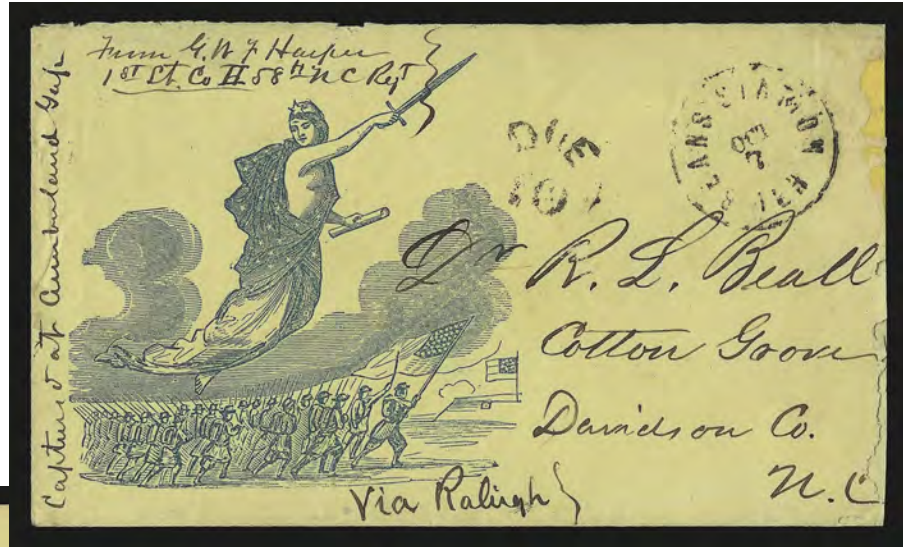 From G. W F Harper
1st Lt. Co H 58th N C Regt
Captured at Cumberland Gap
DUE
10
OCT
7
Dr R. L. Beall
Cotton Grove
Davidson Co.
N. C
Via Raligh